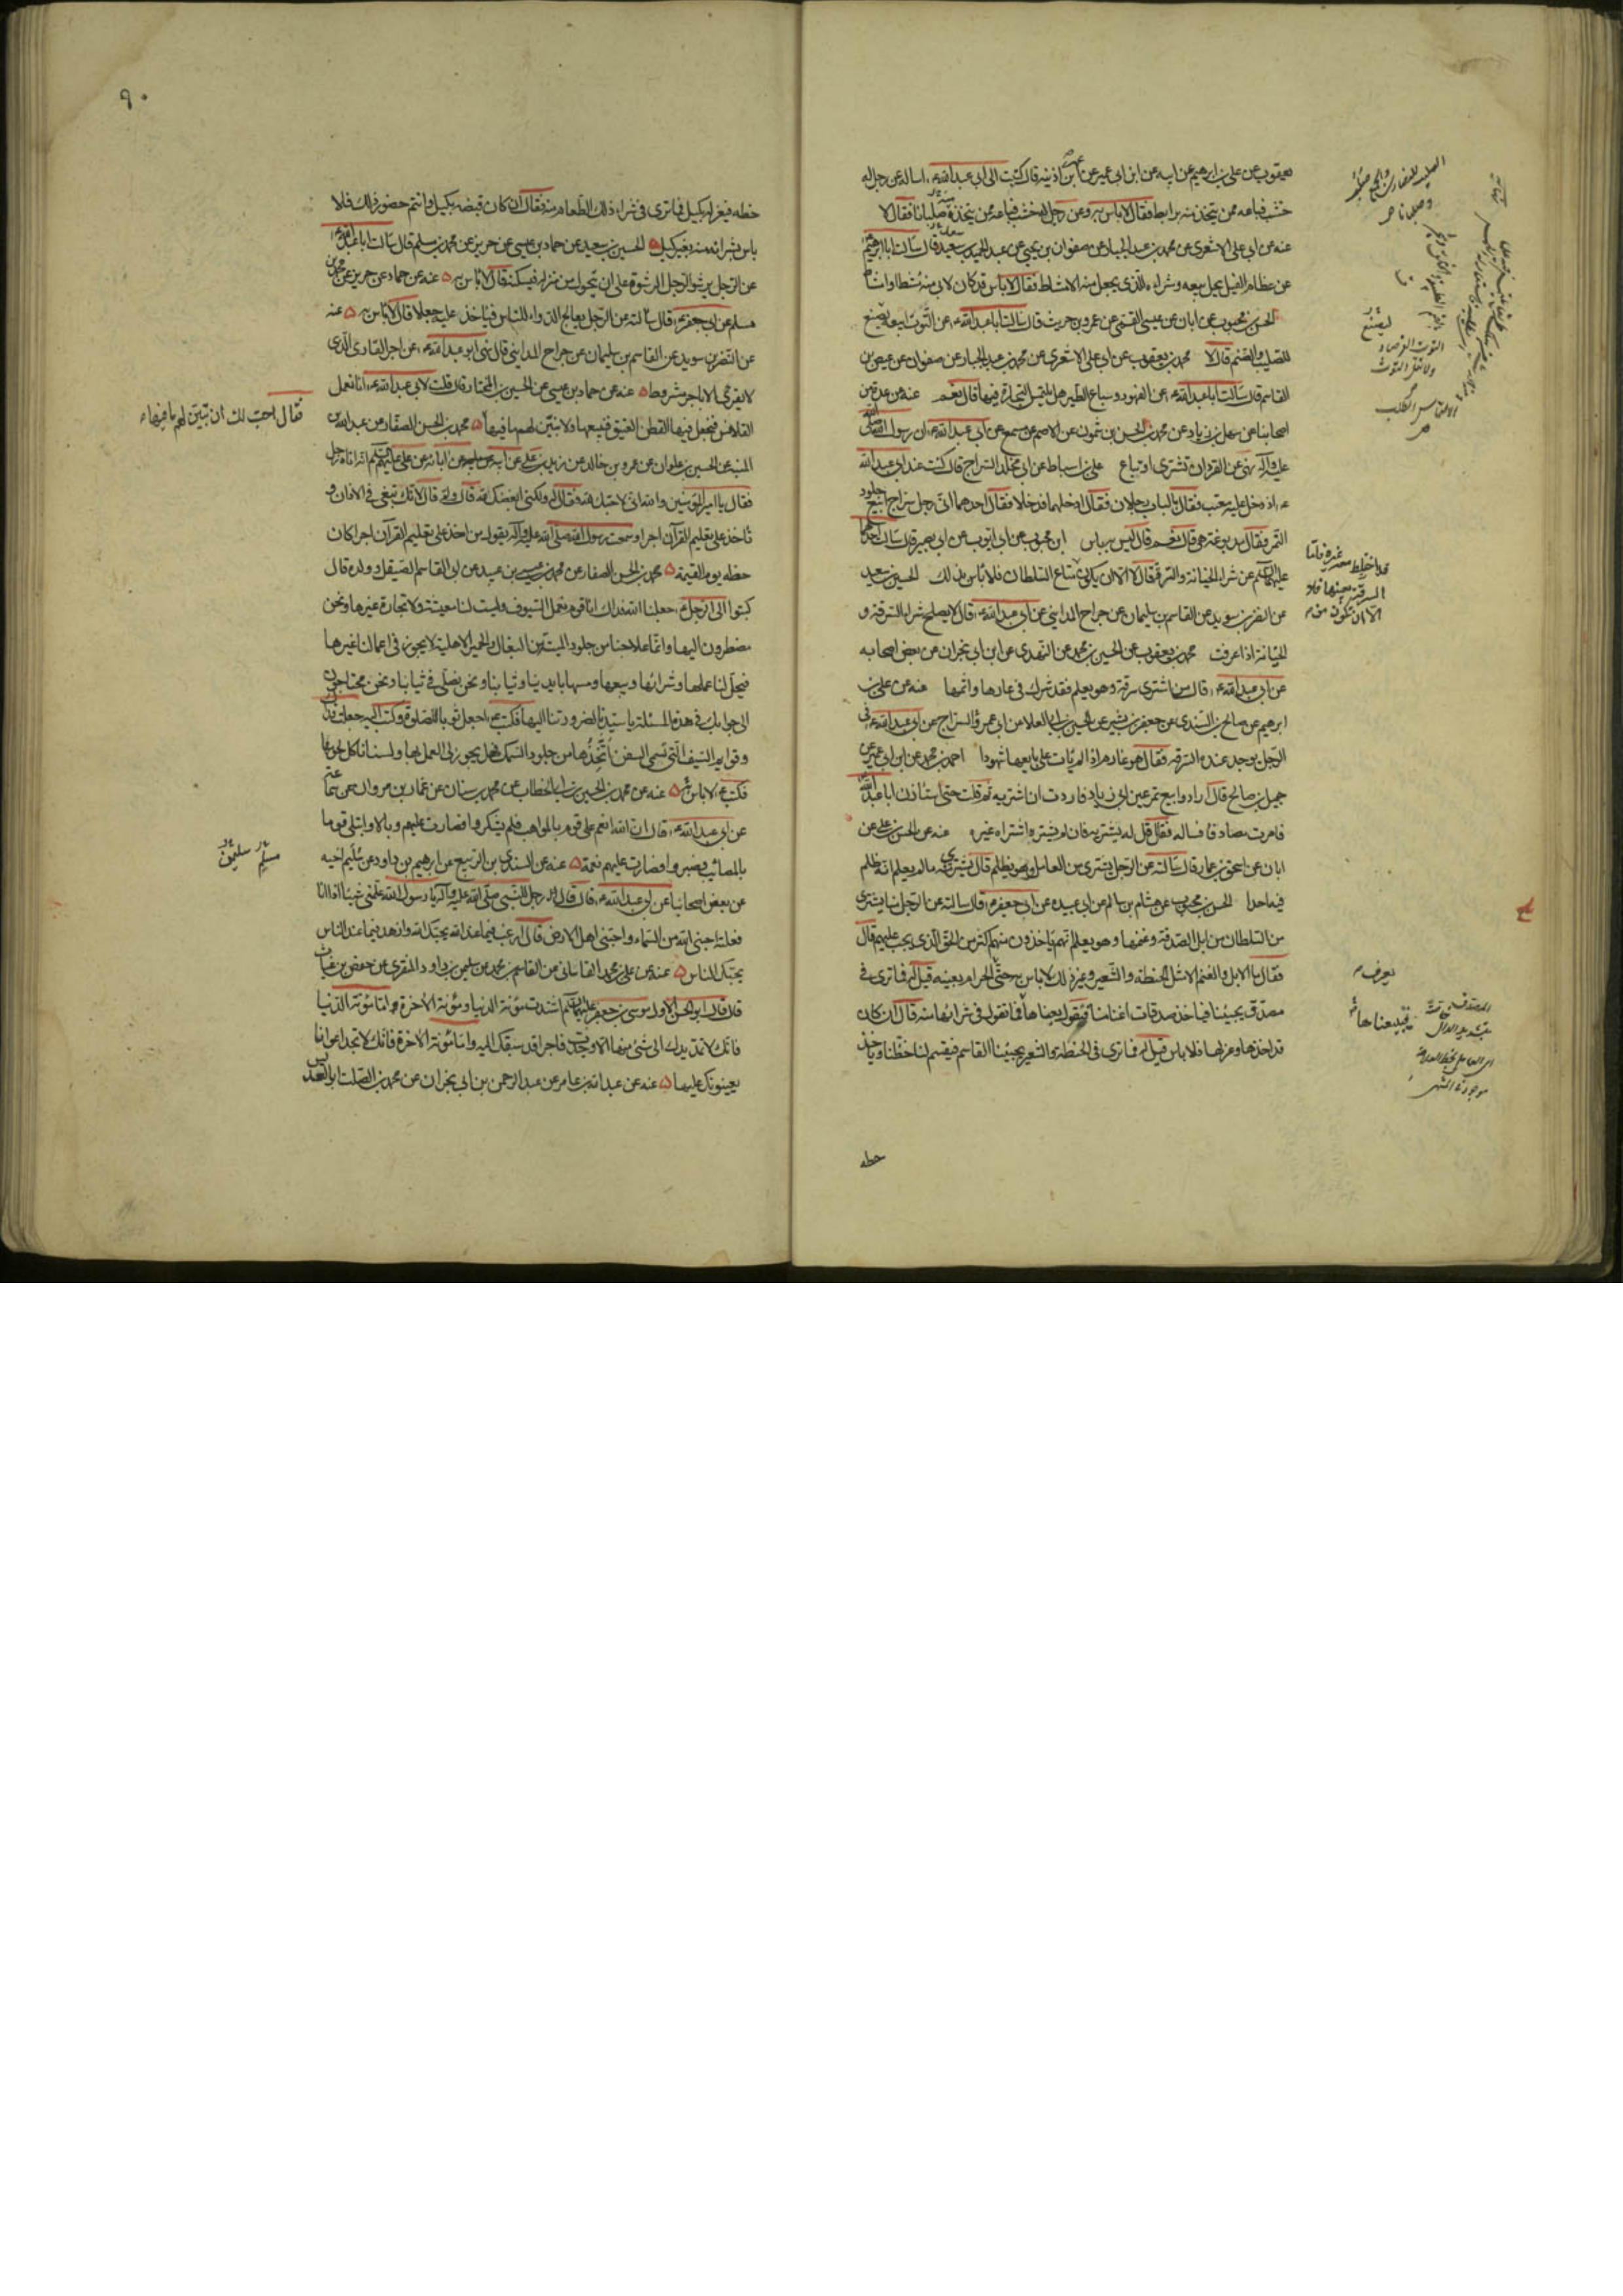 يعقوب عن علي بن ابرهيم عن ابيه عن ابن ابي عمير عن ابن اذينه قال كتبت الى ابي عبدالله ع اساله عن رجل له
خشب فباعه ممن يتخذ منه برابط فقال لا باس به وعن رجل له خشب فباعه ممن يتخذه صلبانا فقال لا
عنه عن ابي علي الاشعري عن محمد بن عبد الجبار عن صفوان بن يحيى عن عبد الحميد بن سعيد قال سالت ابا ابرهيم ع
عن عظام الفيل يحل بيعه وشراءه الذي يجعل منه الامشاط فقال لا باس قد كان لابي منه مشط او امشاط
الحسن بن محبوب عن ابان عن عيسى القمي عن عمرو بن حريث قال سالت ابا عبدالله ع عن التوت ابيعه يصنع
للصليب والصنم قال لا محمد بن يعقوب عن ابي علي الاشعري عن محمد بن عبد الجبار عن صفوان عن عيص بن
القاسم قال سالت ابا عبدالله ع عن الفهود وسباع الطير هل يلتمس التجارة فيها قال نعم عنه عن عدة من
اصحابنا عن سهل بن زياد عن محمد بن الحسن بن شمون عن الاصم عن مسمع عن ابي عبدالله ع ان رسول الله صلى الله
عليه وآله نهى عن القرد ان تشترى او تباع علي بن اسباط عن ابي مخلد السراج قال كنت عند ابي عبدالله
ع اذ دخل عليه معتب فقال بالباب رجلان فقال ادخلهما فدخلا فقال احدهما اني رجل سراج ابيع جلود
النمر فقال مدبوغة هي قال نعم قال ليس به باس ابن محبوب عن ابي ايوب عن ابي بصير قال سالت احدهما
عليهما السلام عن شراء الخيانة والسرقة قال لا الا ان يكون متاع السلطان فلا باس بذلك الحسين بن سعيد
عن النضر بن سويد عن القاسم بن سليمان عن جراح المدايني عن ابي عبدالله ع قال لا يصلح شراء السرقة و
الخيانة اذا عرفت محمد بن يعقوب عن الحسين بن محمد عن النهدي عن ابن ابي نجران عن بعض اصحابه
عن ابي عبدالله ع قال من اشترى سرقة وهو يعلم فقد شرك في عارها واثمها عنه عن علي بن
ابرهيم عن صالح بن السندي عن جعفر بن بشير عن الحسين بن ابي العلا عن ابي عمر والسراج عن ابي عبدالله ع في
الرجل يوجد عنده السرقه فقال هو غارم اذا لم يات على بايعها شهودا احمد بن محمد عن ابن ابي عمير عن
جميل بن صالح قال ارادوا بيع تمر عين ابي زياد فاردت ان اشتريه ثم قلت حتى استاذن ابا عبدالله
فامرت مصادقا فساله فقال قل له يشتريه فان لم يشتره اشتراه غيره عنه عن الحسن بن علي عن
ابان عن اسحق بن عمار قال سالته عن الرجل يشتري من العامل وهو يظلم قال يشتري منه ما لم يعلم انه ظلم
فيه احدا الحسن بن محبوب عن هشام بن سالم عن ابي عبيده عن ابي جعفر ع قال سالته عن الرجل منا يشتري
من السلطان من ابل الصدقة وغنمها وهو يعلم انهم ياخذون منهم اكثر من الحق الذي يجب عليهم قال
فقال ما الابل والغنم الا مثل الحنطه والشعير وغير ذلك لا باس به حتى الحرام بعينه قيل له فما ترى في
مصدق يجيئنا فياخذ صدقات اغنامنا فنقول بعناها فما تقول في شرائها منه قال ان كان
قد اخذها وعزلها فلا باس قيل له فما ترى في الحنطه والشعير يجيئنا القاسم فيقسم لنا حظنا وياخذ
حظه
يعرف
فيبيعناها
٩٠
حظه فيعزله بكيل فما ترى في شراء ذلك الطعام منه فقال ان كان قبضه بكيل وانتم حضور ذلك فلا
باس بشرائه منه بغير كيل الحسين بن سعيد عن حماد بن عيسى عن حريز عن محمد بن مسلم قال سالت ابا عبدالله ع
عن الرجل يرشو الرجل الرشوة على ان يتحول من منزله فيسكنه قال لا باس به عنه عن حماد عن حريز عن محمد بن
مسلم عن ابي جعفر ع قال سالته عن الرجل يعالج الدواء للناس فياخذ عليه جعلا قال لا باس به عنه
عن النضر بن سويد عن القاسم بن سليمان عن جراح المدايني قال نهى ابو عبدالله ع عن اجر القاري الذي
لا يقرئ الا باجر مشروط عنه عن حماد بن عيسى عن الحسين بن المختار قال قلت لابي عبدالله ع انا نعمل
القلانس فنجعل فيها القطن العتيق فنبيعها ولا نبين لهم ما فيها محمد بن الحسن الصفار عن عبد الله بن
فقال احب لك ان تبين لهم ما فيها
المنبه عن الحسين بن علوان عن عمرو بن خالد عن زيد بن علي عن ابيه عن آبائه عن علي عليهم السلم انه اتاه رجل
فقال يا امير المؤمنين والله اني لاحبك لله فقال له ولكني ابغضك لله قال ولم قال لانك تبغي في الاذان و
تاخذ على تعليم القرآن اجرا وسمعت رسول الله صلى الله عليه وآله يقول من اخذ على تعليم القرآن اجرا كان
حظه يوم القيمة محمد بن الحسن الصفار عن محمد بن عيسى بن عبيد عن ابي القاسم الصيقل وولده قال
كتبوا الى الرجل ع جعلنا الله فداك انا قوم نعمل السيوف وليست لنا معيشة ولا تجارة غيرها ونحن
مضطرون اليها وانما علاجنا من جلود الميتة من البغال والحمير الاهلية لا يجوز في اعمالنا غيرها
فيحل لنا عملها وشرائها وبيعها ومسها بايدينا وثيابنا ونحن نصلي في ثيابنا ونحن محتاجون
الى جوابك في هذه المسئلة يا سيدنا لضرورتنا اليها فكتب ع اجعل ثوبا للصلوة وكتب اليه جعلت فداك
وقوايم السيف التي تسمى السفن اتخذها من جلود السمك فهل يجوز لي العمل بها ولسنا ناكل لحومها
فكتب ع لا باس عنه عن محمد بن الحسين بن ابي الخطاب عن محمد بن سنان عن عمار بن مروان عن سماعة
عن ابي عبدالله ع قال ان الله انعم على قوم بالمواهب فلم يشكروا فصارت عليهم وبالا وابتلى قوما
بالمصائب فصبروا فصارت عليهم نعمة عنه عن السندي بن الربيع عن ابرهيم بن داود عن سليم اخيه
مسلم سليمن
عن بعض اصحابنا عن ابي عبدالله ع قال قال رجل للنبي صلى الله عليه وآله يا رسول الله علمني شيئا اذا انا
فعلته احبني الله من السماء واحبني اهل الارض قال ارغب فيما عند الله يحبك الله وازهد فيما عند الناس
يحبك الناس عنه عن علي بن محمد القاساني عن القاسم بن محمد عن سليمن بن داود المنقري عن حفص بن غياث
قال قال ابو الحسن الاول موسى بن جعفر عليهما السلم اشتدت مؤنة الدنيا ومؤنة الآخرة واما مؤنة الدنيا
فانك لا تمد يدك الى شئ منها الا وجدت فاجرا قد سبقك اليه واما مؤنة الآخرة فانك لا تجد اعوانا
يعينونك عليها عنه عن عبدالله بن عامر عن عبد الرحمن بن ابي نجران عن محمد بن الصلت